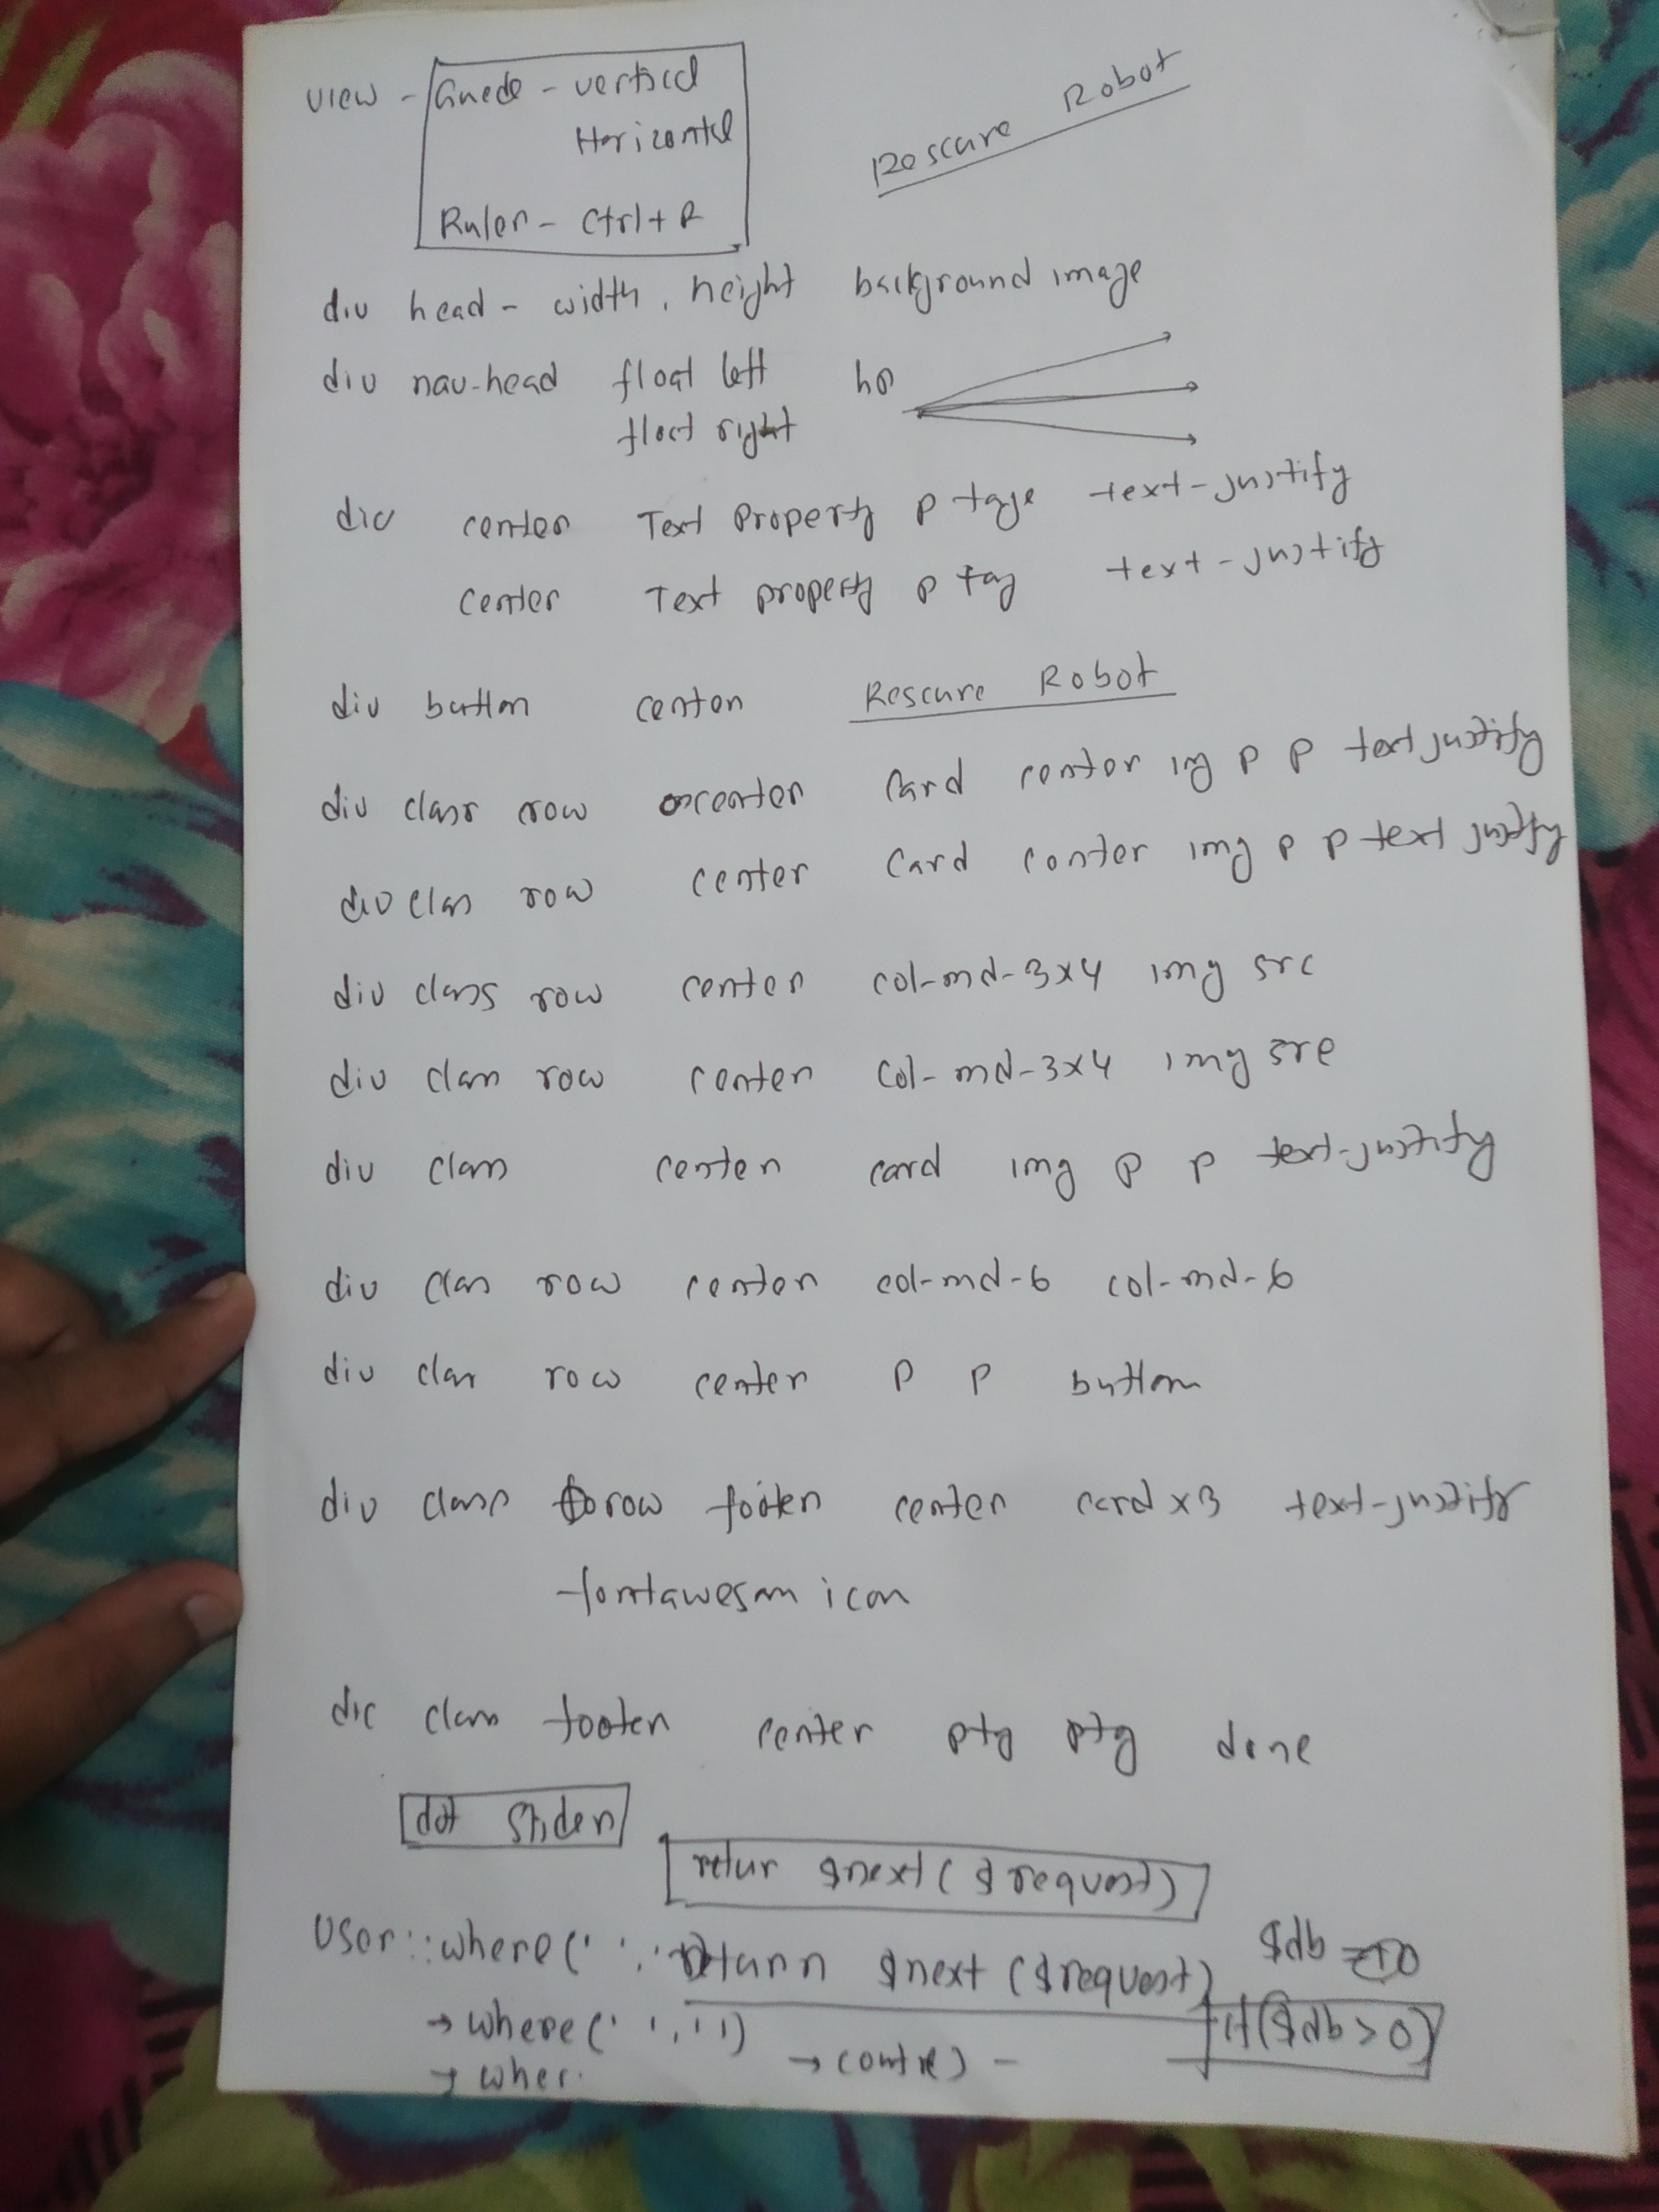 view - Guede - vertical
Horizontal
Ruler - Ctrl + R
Rescure Robot
div head - width, height background image
div nav-head float left
float right
div center Text Property p tage text-justify
center Text property p tag text-justify
div button center Rescure Robot
div class row center Card center img p p text justify
div class row center Card center img p p text justify
div class row center col-md-3x4 img src
div class row center col-md-3x4 img src
div class center card img p p text-justify
div class row center col-md-6 col-md-6
div class row center p p button
div class row footer center card x3 text-justify
fontawesom icon
div class footer center ptg ptg done
dot Slider
retur $next($request)
User::where(' ', ' return $next($request) $db = 0
→ where(' ', ' ') if($db > 0)
→ wher.